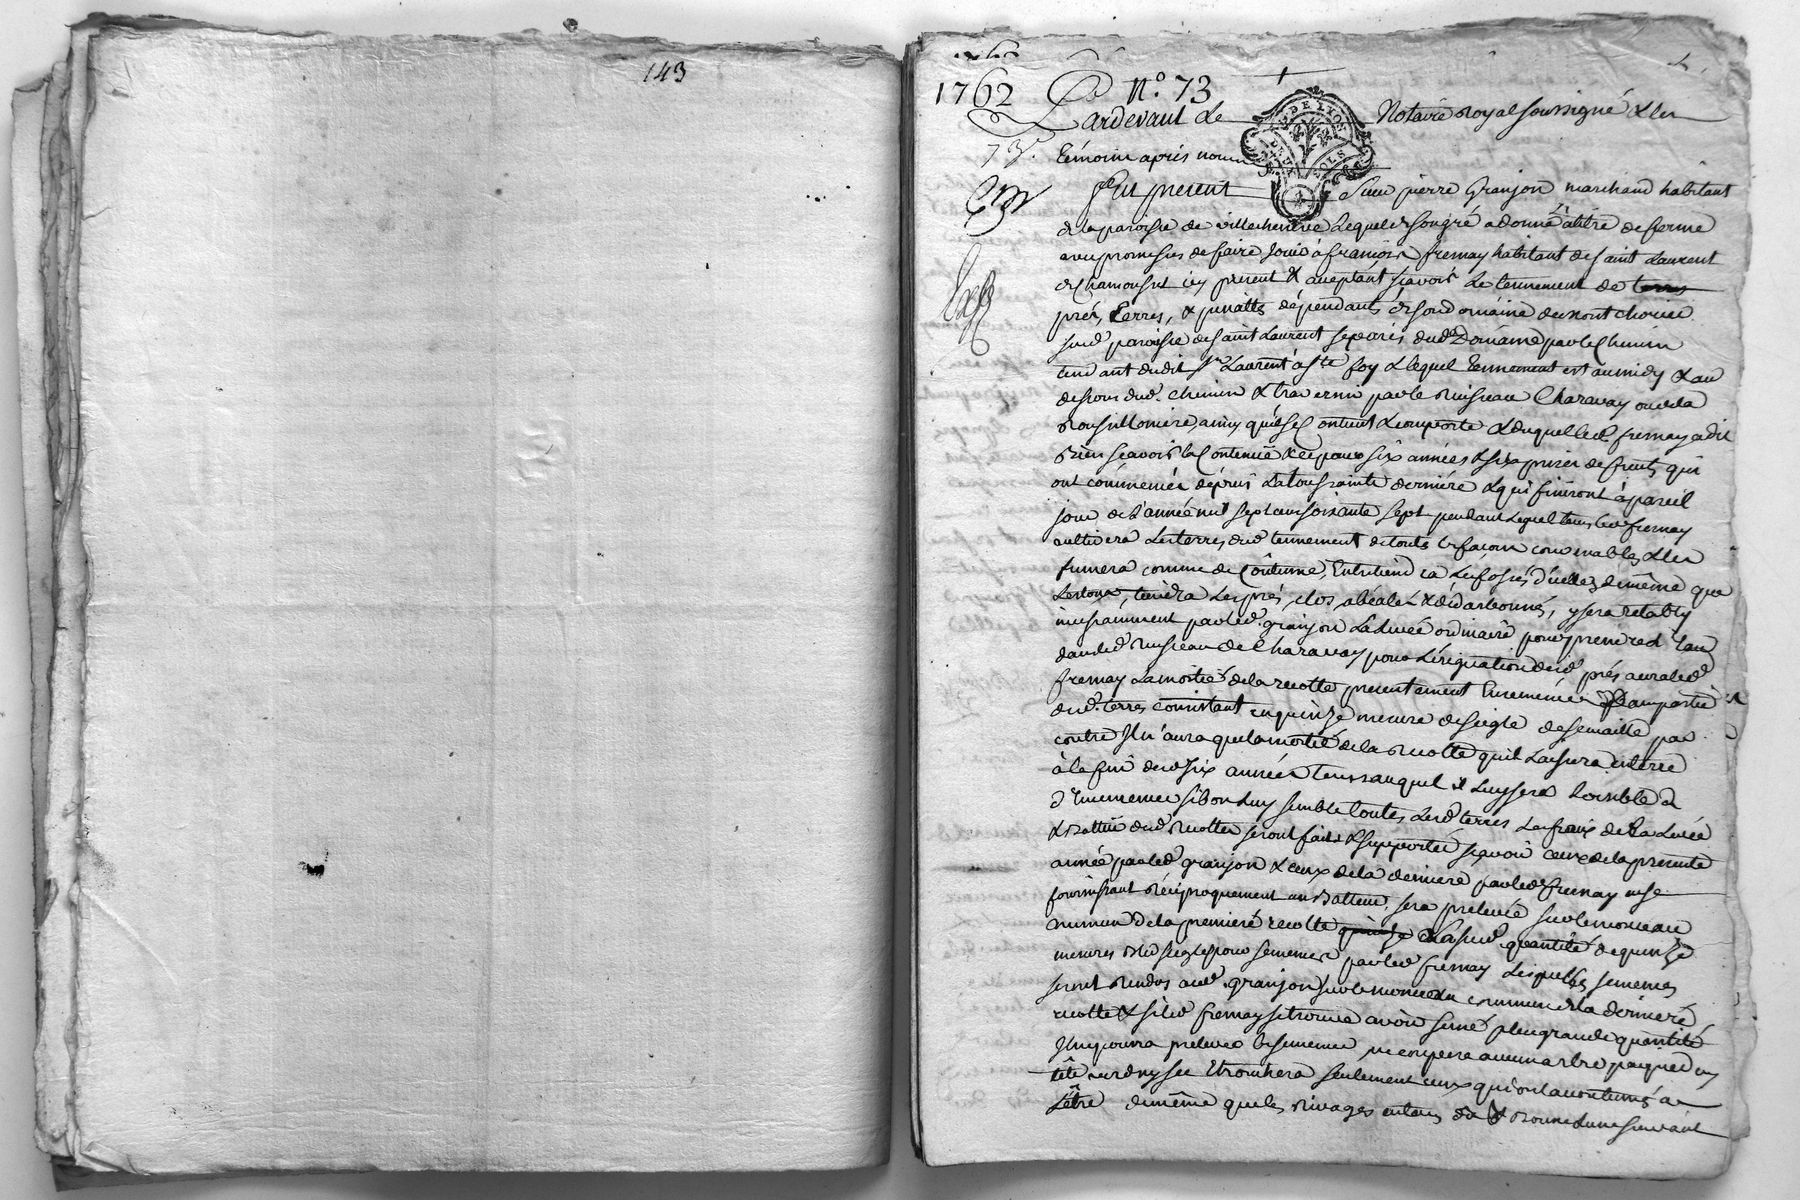 143
1762 N.° 73
Pardevant Le Notaire Royal soussigné & les
DE LYON
2 SOLS
73.e
témoins après nommés
fut présent Sieur pierre Granjon marchand habitant
de la paroisse de villechenève Lequel de son gré a donné à titre de ferme
avec promesses de faire Jouir à françois fresnay habitant de saint Laurent
de Chamousset icy présent & acceptant sçavoir Le tennement de terres
prés, terres, & dépendants de son domaine
sur lad. paroisse de saint Laurent séparés dud. Domaine par le Chemin
tendant dudit St Laurent à Ste foy & lequel tennement est au midy & au
dessous dud. chemin & traversé par le Ruisseau Charavay ou de la
Rousilloniere, ainsy qu'il se Contient & comporte & duquel led. fresnay a dit
bien sçavoir la Contenue & ce pour six années & six prises de fruits qui
ont commencées dépuis La toussainte dernière & qui finiront à pareil
jour de L'année mil sept cent soixante sept pendant Lequel tems led. fresnay
cultivera Les terres dud. tennement de toutes les façons convenables & les
fumera comme de Coûtume, Entretiendra Les fossés d'icelles de même que
tiendra Les prés, clos, & , y sera rétably
incessamment par led. granjon La Levée ordinaire pour prendre L'eau
dans led. Ruisseau de Charavay pour L'irrigation desd. prés aura led.
fresnay La moitié de la recolte presentement Ensemencée partie
desd. terres consistant en quinze mesures de seigle de semaille par
contre Il n'aura que la moitié de la recolte qu'il Laissera en terre
à la fin desd. six années tems auquel il Luy sera Loisible de
d'Ensemencer si bon Luy semble toutes Lesd. terres Les fraix de La Levée
& Batture desd. Recoltes seront faits & supportés sçavoir ceux de la presente
année par led. granjon & ceux de la derniere par led. fresnay en se
fournissant réciproquement un Batteur, sera prelevée sur le monceau
commun de la premiere recolte quinze quantité de quinze
mesures bled seigle pour semences par led. fresnay Lesquelles semences
seront Rendues aud. granjon sur le monceau commun de la derniere
recolte & si led. fresnay se trouve avoir semé plus grande quantité
Il en pourra prelever les semences ne coupera aucun arbre par pied ny
tête ny sec Ebranchera seulement ceux qui ont accoutumés de
L'être de même que les Rivages en tems dû & Bonne Lune suivant